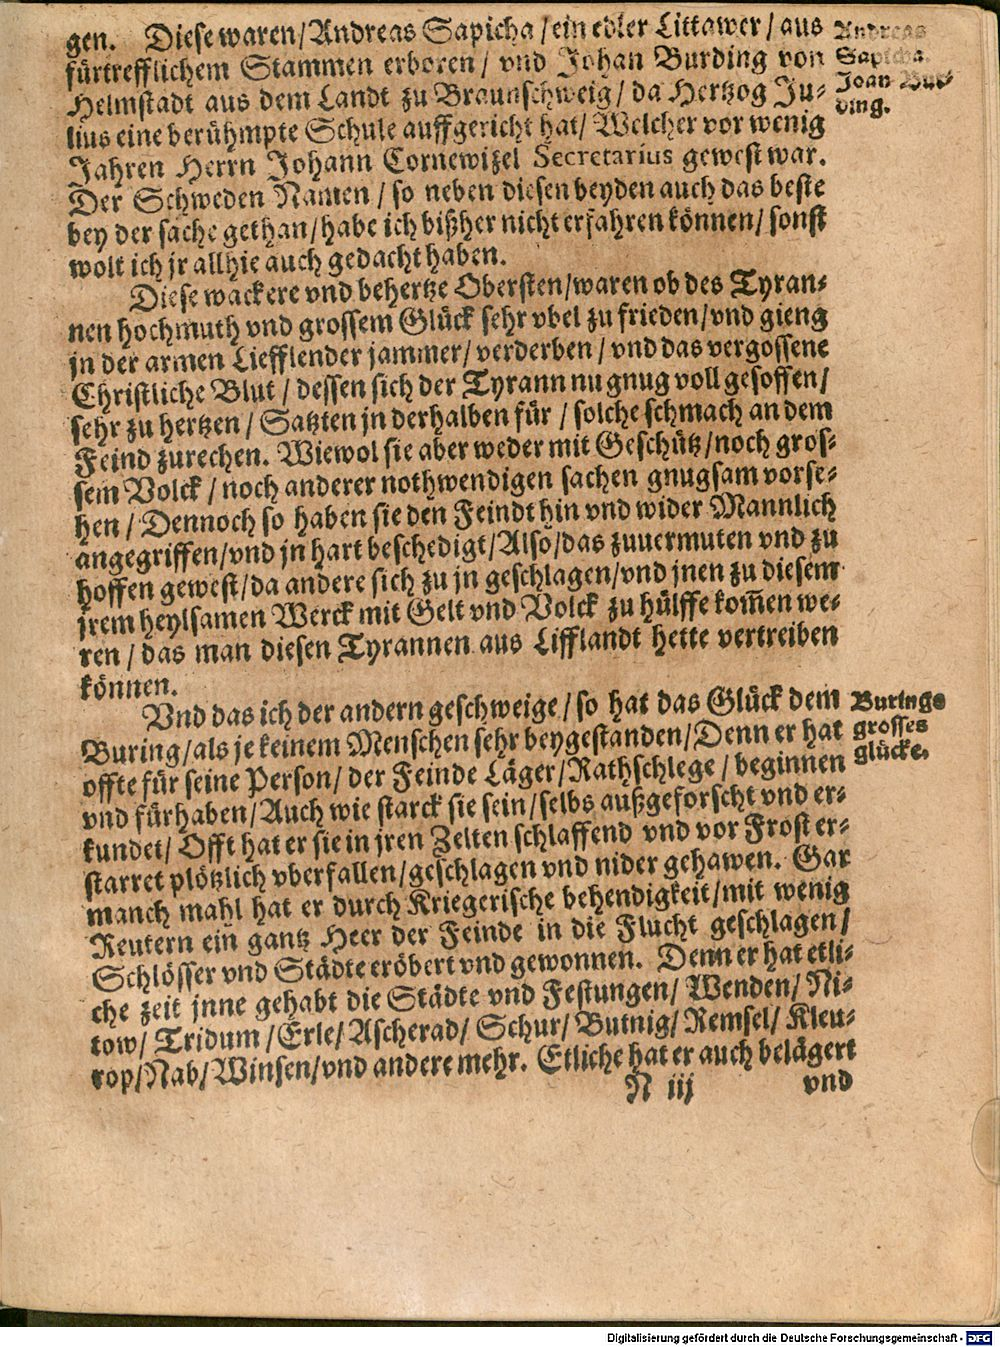 gen. Diese waren/Andreas Sapicha/ein edler Littawer/aus
fürtrefflichem Stammen erboren/ vnd Johan Burding von
Helmstadt aus dem Landt zu Braunschweig/da Hertzog Ju-
lius eine berühmpte Schule auffgericht hat/Welcher vor wenig
Jahren Herrn Johann Cornewitzel Secretarius gewest war.
Der Schweden Namen/so neben diesen beyden auch das beste
bey der sache gethan/habe ich bißher nicht erfahren können/sonst
wolt ich jr allhie auch gedacht haben.
Andreas
Sapicha.
Joan Bur-
ding.
Diese wackere vnd behertze Obersten/waren ob des Tyran-
nen hochmuth vnd grossem Glück sehr vbel zu frieden/vnd gieng
jn der armen Liefflender jammer/verderben/vnd das vergossene
Christliche Blut/dessen sich der Tyrann nu gnug voll gesoffen/
sehr zu hertzen/Satzten jn derhalben für/solche schmach an dem
Feind zurechen. Wiewol sie aber weder mit Geschütz/noch gros-
sem Volck/noch anderer nothwendigen sachen gnugsam vorse-
hen/Dennoch so haben sie den Feindt hin vnd wider Mannlich
angegriffen/vnd jn hart beschedigt/Also/das zuuermuten vnd zu
hoffen gewest/da andere sich zu jn geschlagen/vnd jnen zu diesem
jrem heylsamen Werck mit Gelt vnd Volck zu hülffe kom̄en we-
ren/das man diesen Tyrannen aus Lifflandt hette vertreiben
können.
Vnd das ich der andern geschweige/so hat das Glück dem
Buring/als je keinem Menschen sehr beygestanden/Denn er hat
offte für seine Person/der Feinde Läger/Rathschlege/beginnen
vnd fürhaben/Auch wie starck sie sein/selbs außgeforscht vnd er-
kundet/Offt hat er sie in jren Zelten schlaffend vnd vor Frost er-
starret plötzlich vberfallen/geschlagen vnd nider gehawen. Gar
manch mahl hat er durch Kriegerische behendigkeit/mit wenig
Reutern ein gantz Heer der Feinde in die Flucht geschlagen/
Schlösser vnd Städte eröbert vnd gewonnen. Denn er hat etli-
che zeit jnne gehabt die Städte vnd Festungen/Wenden/Ni-
tow/Tridum/Erle/Ascherad/Schur/Butnig/Remsel/Kleu-
rop/Nab/Winsen/vnd andere mehr. Etliche hat er auch belägert
Burings
grosses
glücke.
N iij
vnd
Digitalisierung gefördert durch die Deutsche Forschungsgemeinschaft - DFG